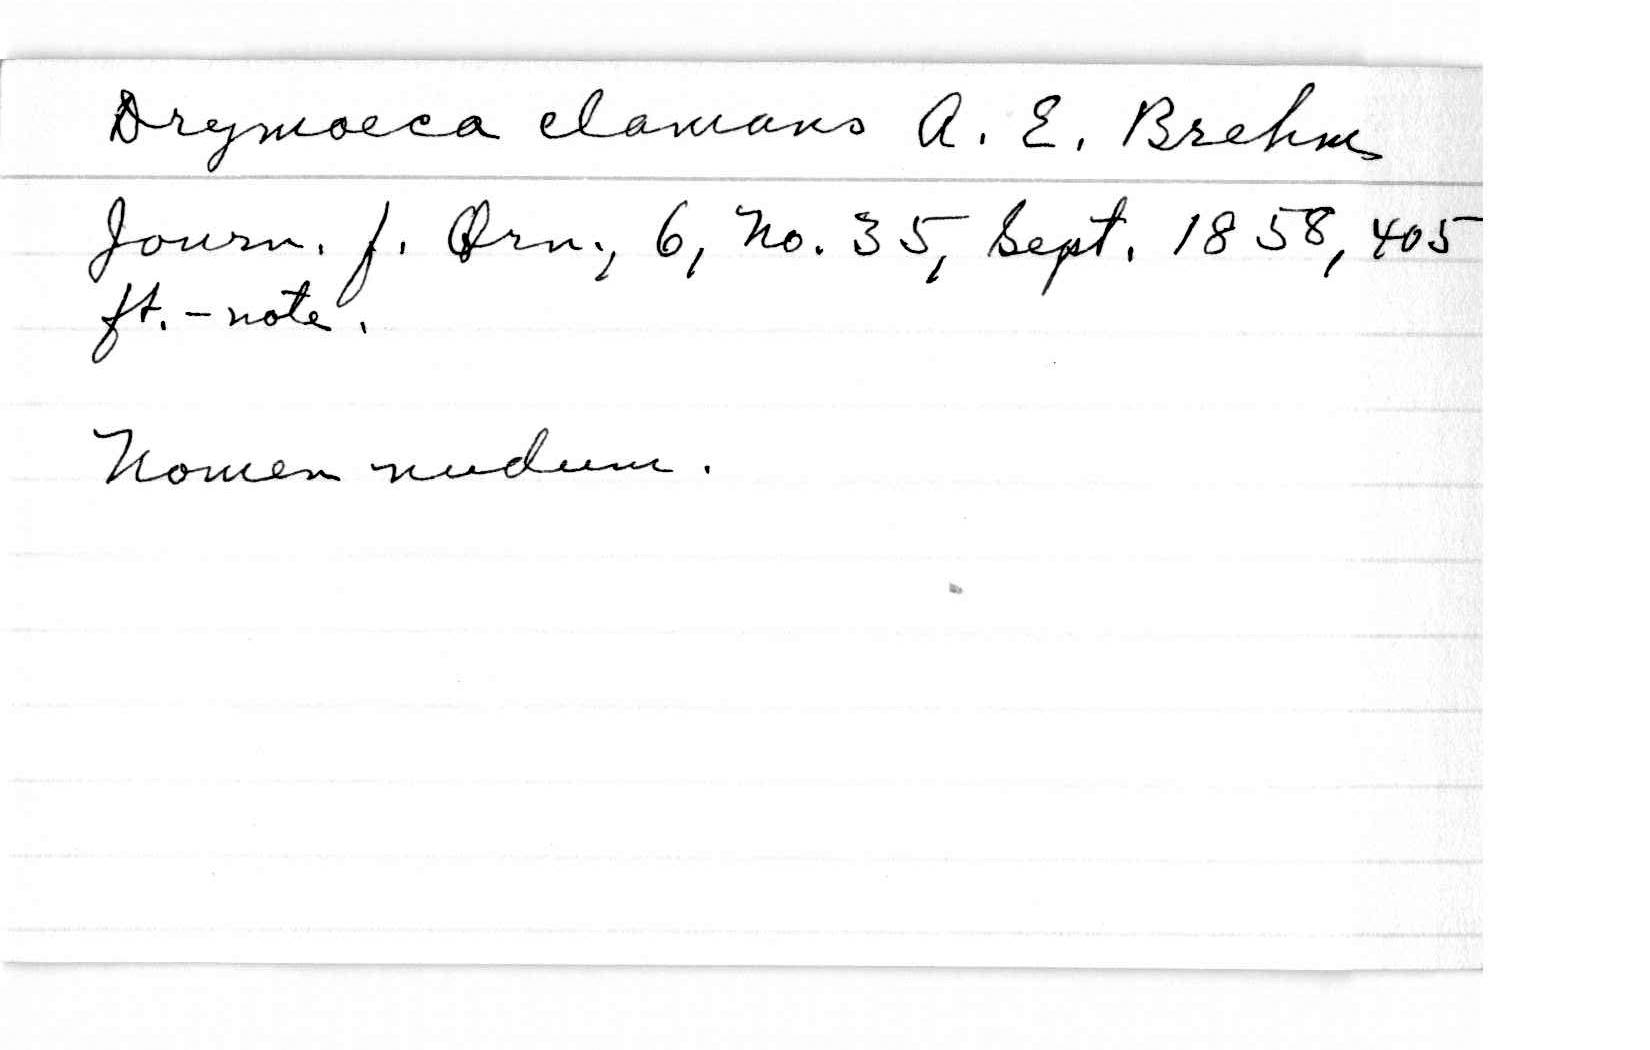 Drymoeca clamans A. E. Brehm
Journ. f. Orn., 6, No. 35, Sept. 1858, 405
ft.-note.
Nomen nudum.